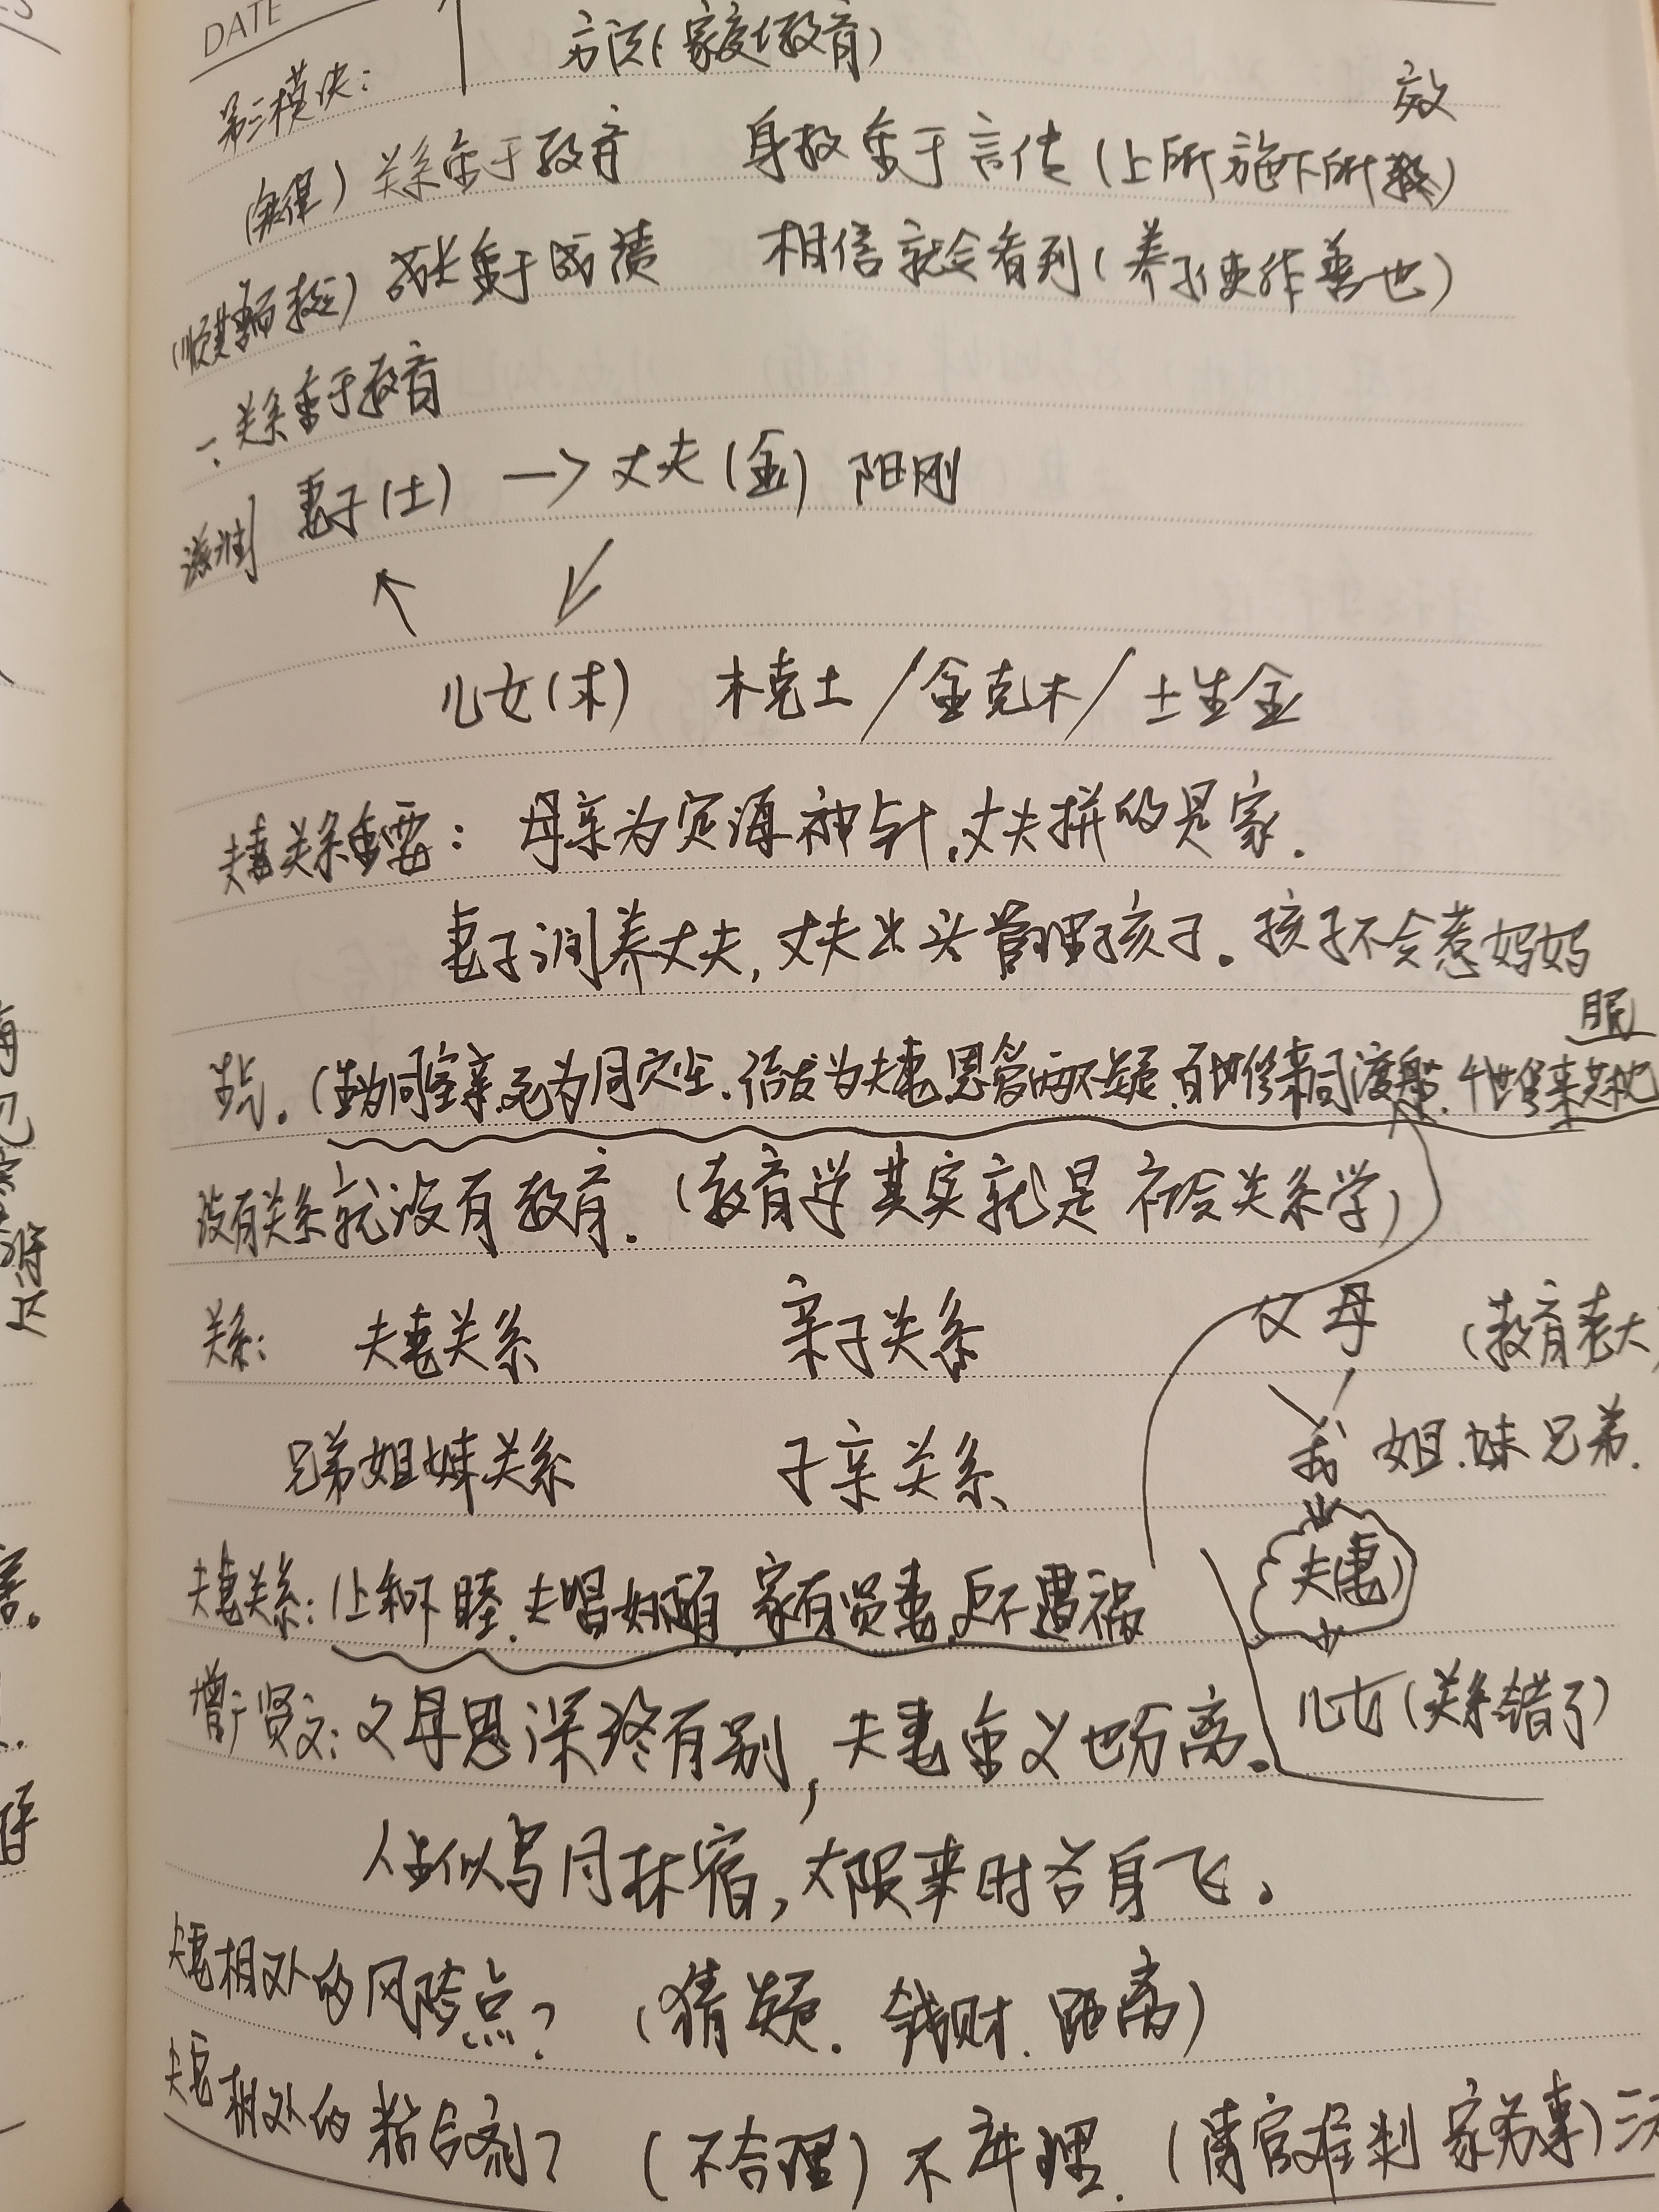 DATE
方法(家庭教育)
第三模块:
效
关系重于教育 身教重于言传(上所施下所教)
(顺其善而教之) 成长重于成绩 相信就会看到(养子使作善也)
一、关系重于教育
滋润 妻子(土) → 丈夫(金) 阳刚
儿女(木) 木克土/金克木/土生金
夫妻关系重要: 母亲为定海神针,丈夫拼的是家.
妻子润养丈夫,丈夫出头管理孩子。孩子不会惹妈妈
生气.(生为同室亲,死为同穴尘.结发为夫妻,恩爱两不疑.百世修来同渡船.千世修来共枕
眠
没有关系就没有教育.(教育学其实就是社会关系学)
关系: 夫妻关系 亲子关系 父母 (教育老大)
兄弟姐妹关系 子亲关系 我 姐.妹兄弟.
夫妻关系:上和下睦.夫唱妇随 家有贤妻,夫不遭祸 夫(妻)
儿女(关系错了)
增广贤文:父母恩深终有别,夫妻重义也分离。
人生似鸟同林宿,大限来时各身飞.
夫妻相处的风险点? (猜疑.钱财.距离)
夫妻相处的粘合剂? (不合理)不讲理.(清官难判家务事)